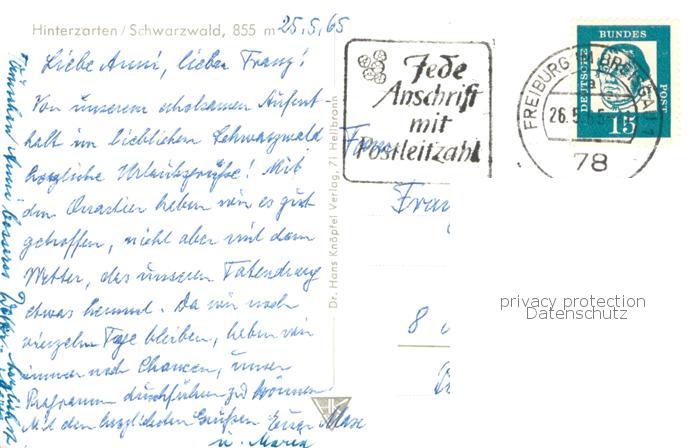 Hinterzarten/Schwarzwald, 855 m
25.5.65
Liebe Anni, lieber Franz!
Von unserem erholsamen Aufent-
halt im lieblichen Schwarzwald
herzliche Urlaubsgrüße! Mit
dem Quartier haben wir es gut
getroffen, nicht aber mit dem
Wetter, das unseren Tatendrang
etwas hemmt. Da wir noch
vierzehn Tage bleiben, haben wir
immer noch Chancen, unser
Programm durchführen zu können
Mit den herzlichsten Grüßen Euer Max
u. Maria
Dr. Hans Knöpfel Verlag, 71 Heilbronn
Jede
Anschrift
mit
Postleitzahl
FREIBURG IM BREISGAU 1
a
26.5.65
78
DEUTSCHE
BUNDES
POST
15
Fam
Fran
8
privacy protection
Datenschutz